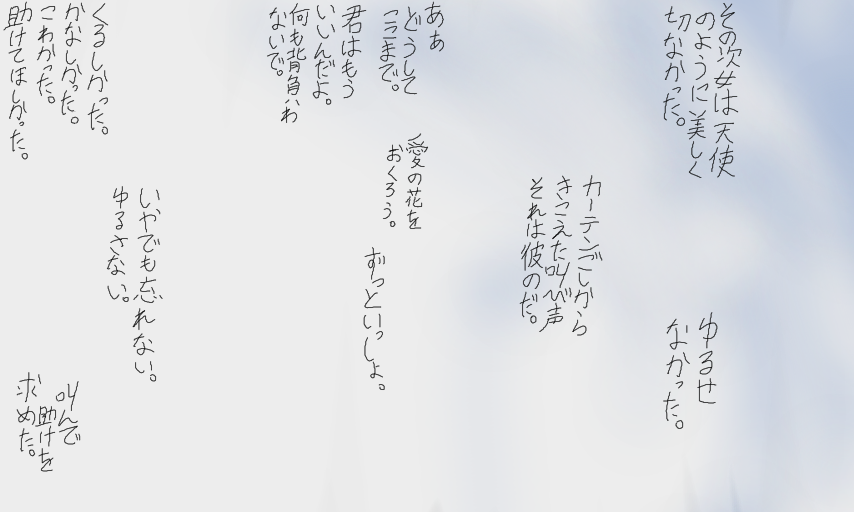 その次女は天使
のように美しく
切なかった。
ゆるせ
なかった。
カーテンごしから
きこえた叫び声
それは彼のだ。
ああ
どうして
ここまで。
愛の花を
おくろう。
ずっといっしょ。
君はもう
いいんだよ。
何も背負わ
ないで。
いやでも忘れない。
ゆるさない。
くるしかった。
かなしかった。
こわかった。
助けてほしかった。
叫んで
助けを
求めた。